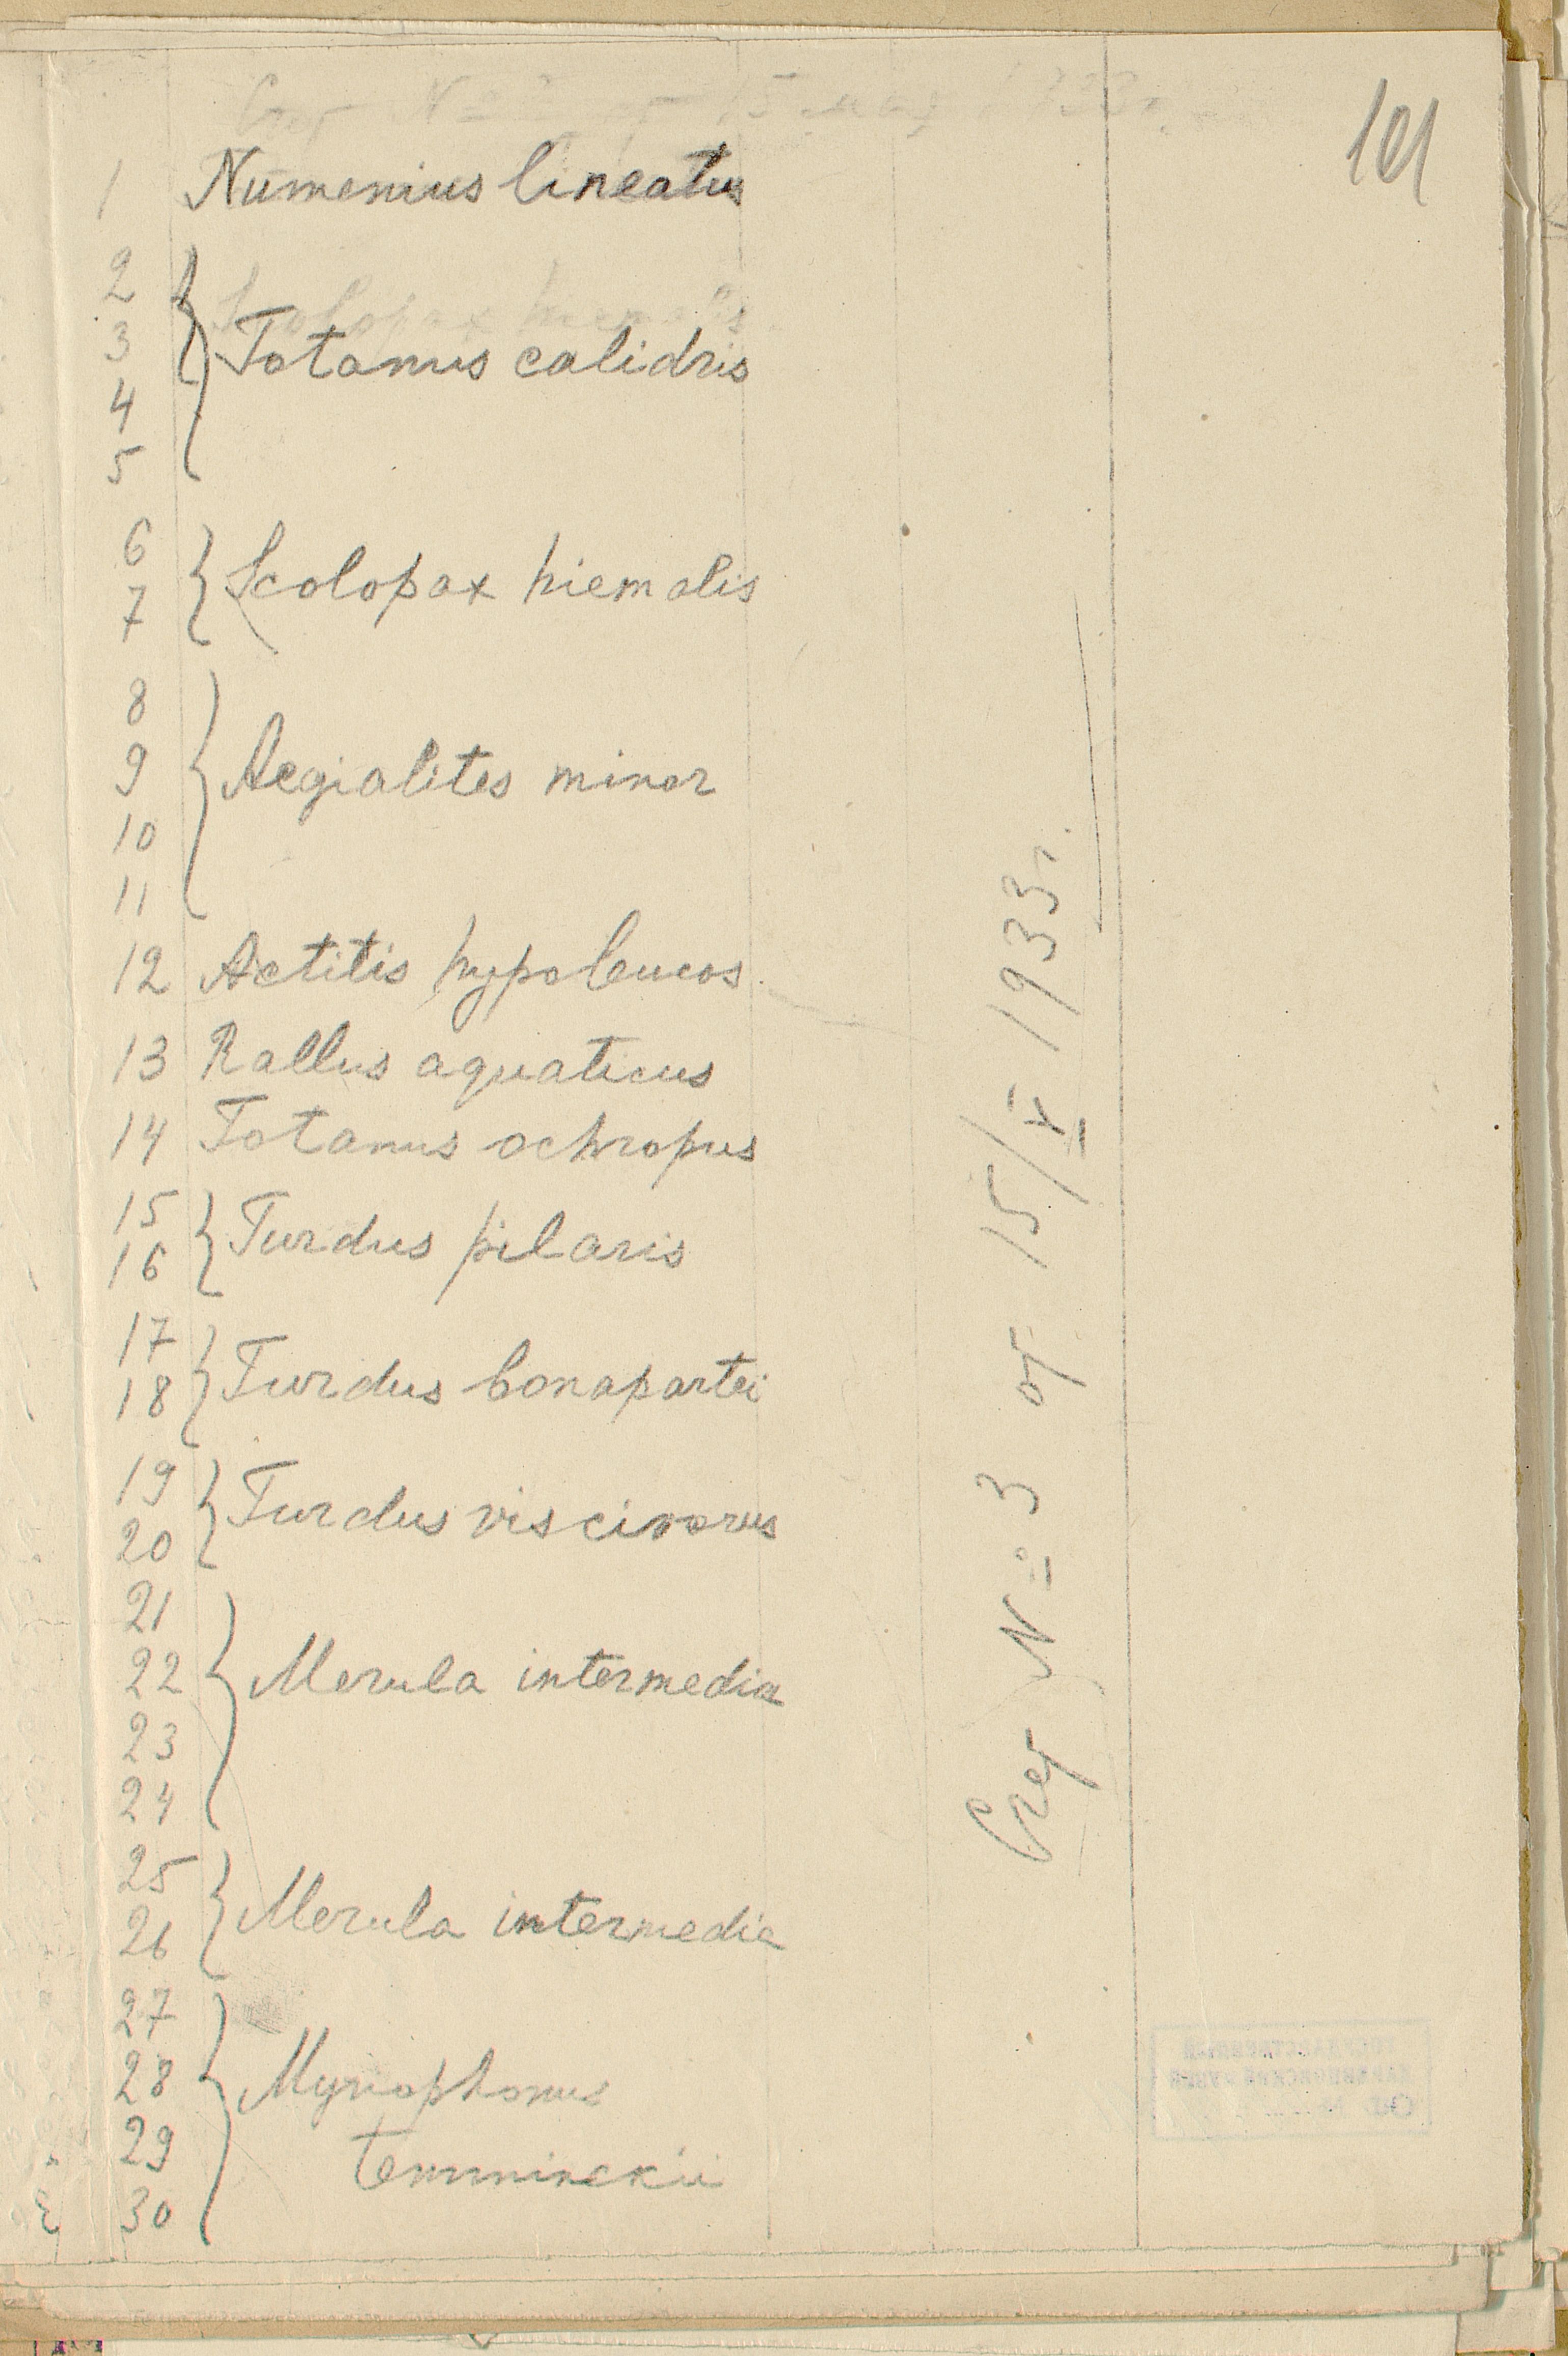 101
1 Numenius lineatus
2
3 Totanus calidris
4
5
6 Scolopax hiemalis
7
8
9 Aegialites minor
10
11
12 Actitis hypoleucos.
13 Rallus aquaticus
14 Totanus ochropus
15 Turdus pilaris
16
17
18 Turdus bonapartei
19
20 Turdus viscivorus
21
22 Merula intermedia
23
24
25
26 Merula intermedia
27
28 Myriophonus
29 temminckii
30
Счет № 3 от 15/V 1933г.